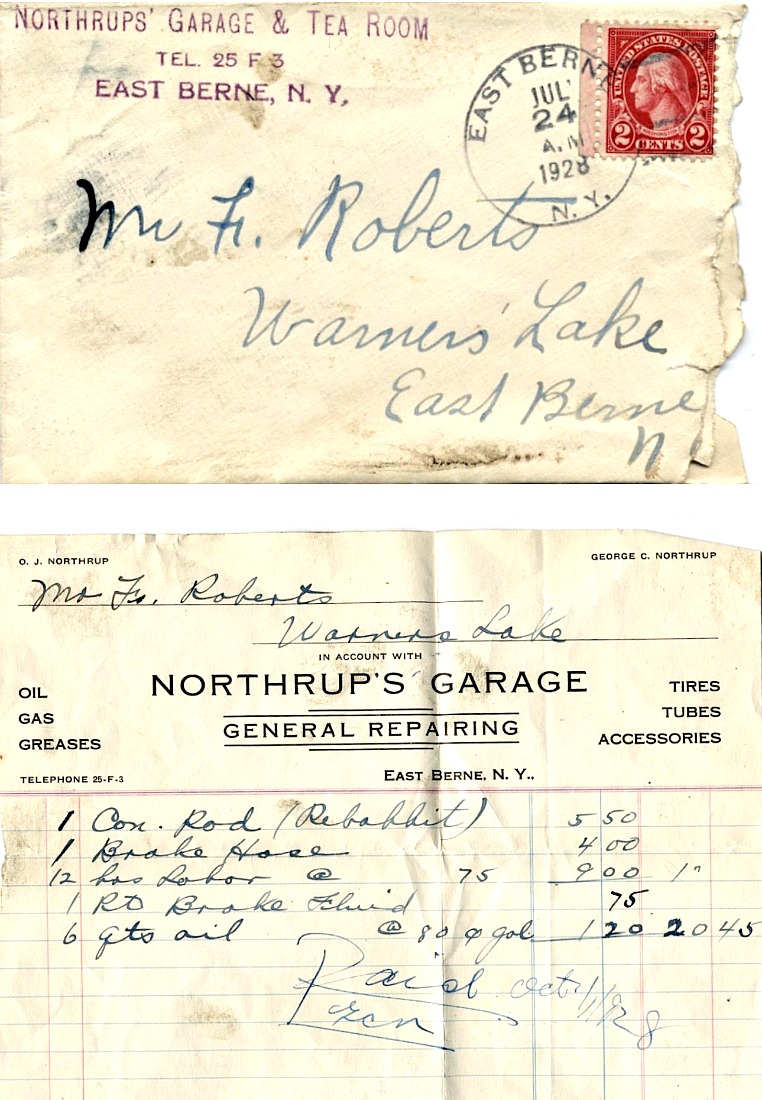 NORTHRUPS' GARAGE & TEA ROOM
TEL. 25 F 3
EAST BERNE, N. Y,
EAST BERNE
JUL
24
A.M
1928
N.Y.
UNITED STATES POSTAGE
WASHINGTON
2 CENTS 2
Mr Fr. Roberts
Warners' Lake
East Berne
N
O. J. NORTHRUP
GEORGE C. NORTHRUP
Mr Fr. Roberts
Warners Lake
IN ACCOUNT WITH
NORTHRUP'S GARAGE
GENERAL REPAIRING
OIL
GAS
GREASES
TIRES
TUBES
ACCESSORIES
TELEPHONE 25-F-3
EAST BERNE, N. Y.,
1 Con. Rod (Rebabbit) 5 50
1 Brake Hose 4 00
12 hrs Labor @ 75 9 00
1 Brake Fluid 75
6 qts oil @ 80 ¢ gal. 1 20 20 45
Paid Oct. 1/1928
GCN